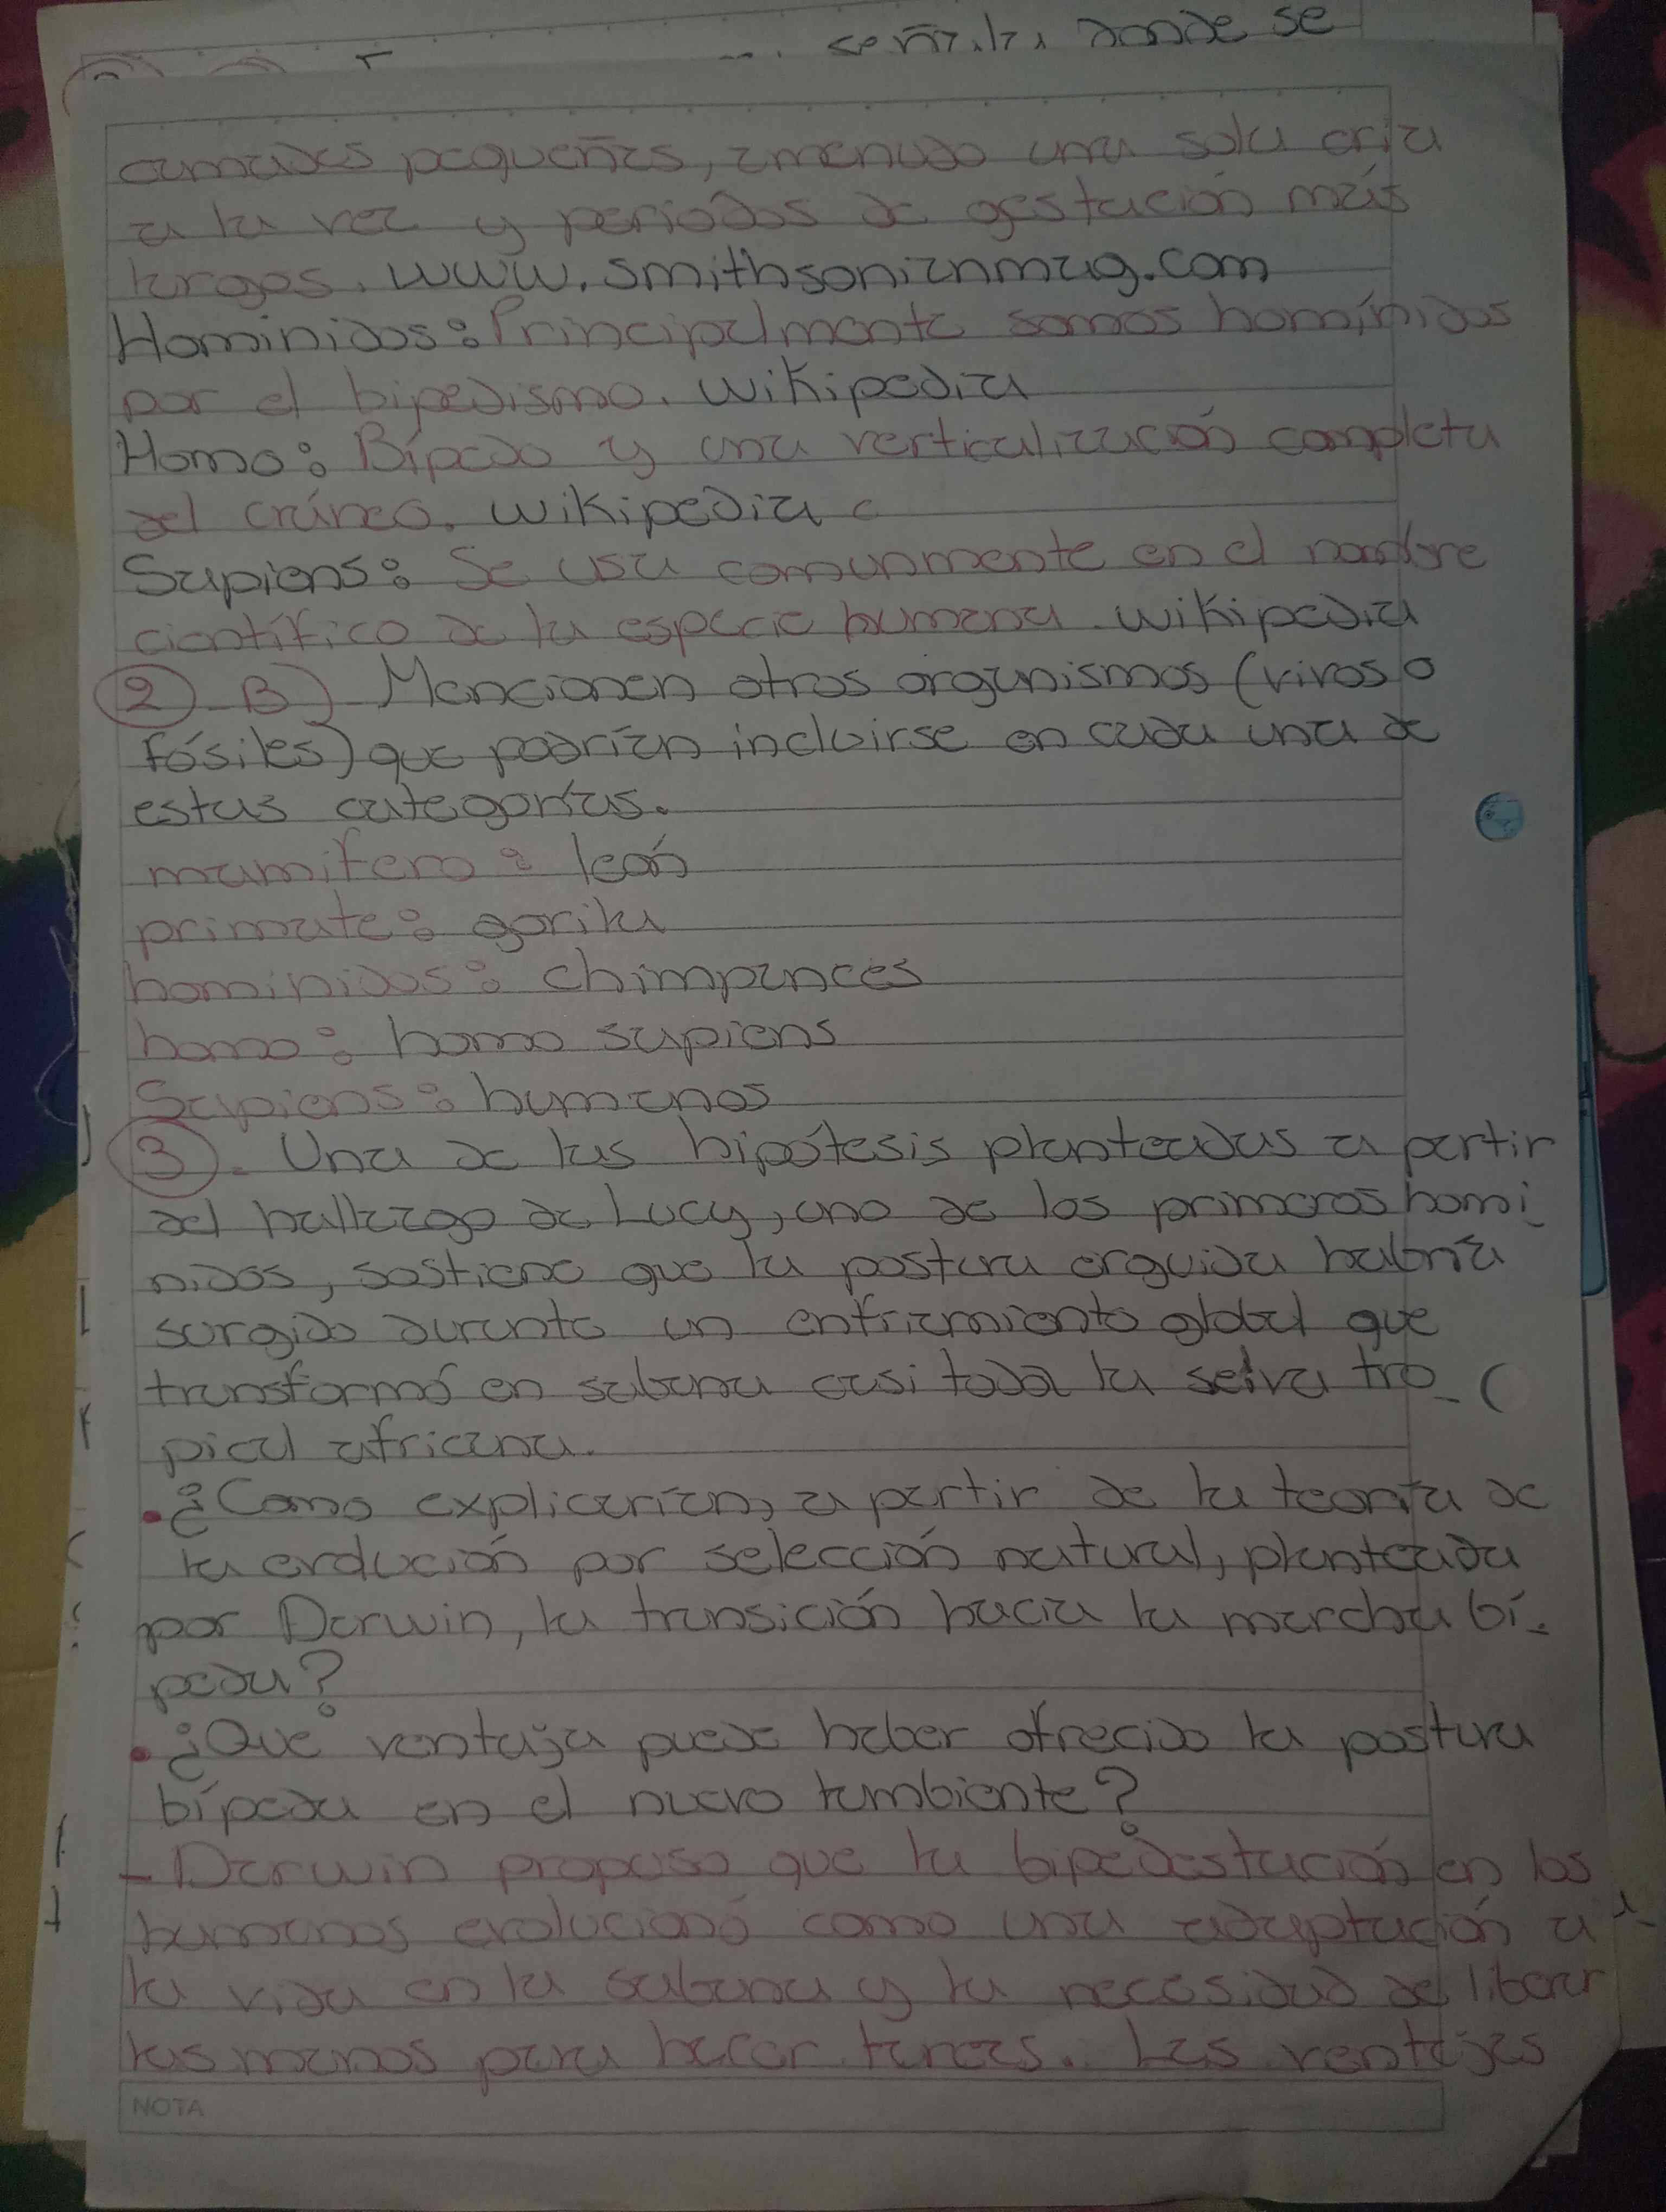 señala donde se
camadas pequeñas, amenudo una sola cria
a la vez y periodos de gestación más
largos. www.smithsonianmag.com
Hominidos: Principalmente somos homínidos
por el bipedismo. Wikipedia
Homo: Bípedo y una verticalización completa
del cráneo. Wikipedia
Sapiens: Se usa comunmente en el nombre
científico de la especie humana. Wikipedia
2 B) Mencionen otros organismos (vivos o
fósiles) que podrían incluirse en cada una de
estas categorías.
mamifero: león
primate: gorila
homínidos: chimpances
homo: homo sapiens
Sapiens: humanos
3 - Una de las hipótesis planteadas a partir
del hallazgo de Lucy, uno de los primeros homi_
nidos, sostiene que la postura erguida habría
surgido durante un enfriamiento global que
transformó en sabana casi toda la selva tro_
pical africana.
• ¿Como explicarían, a partir de la teoría de
la evolución por selección natural, planteada
por Darwin, la transición hacia la marcha bí_
peda?
• ¿Que ventaja puede haber ofrecido la postura
bípeda en el nuevo tambiente?
- Darwin propuso que la bipedestación en los
humanos evolucionó como una adaptación a
la vida en la sabana y la necesidad de liberar
las manos para hacer tareas. Las ventajas
NOTA